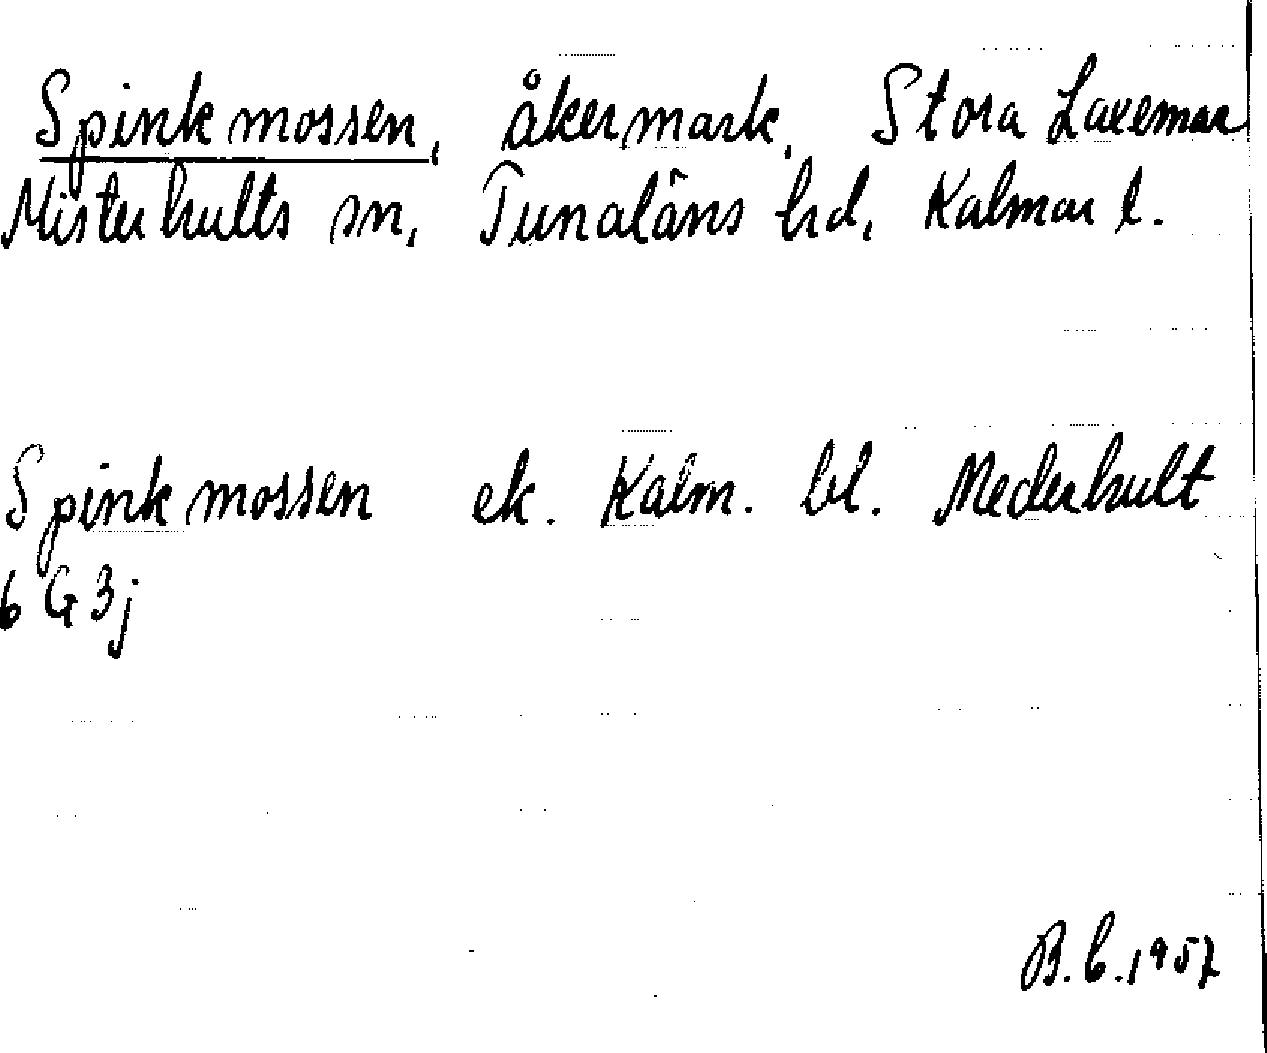 Spinkmossen, åkermark, Stora Laxemar
Misterhults sn, Tunaläns hd, Kalmar l.
Spinkmossen ek. Kalm. bl. Mederhult
6 G 3j
B.C. 1957